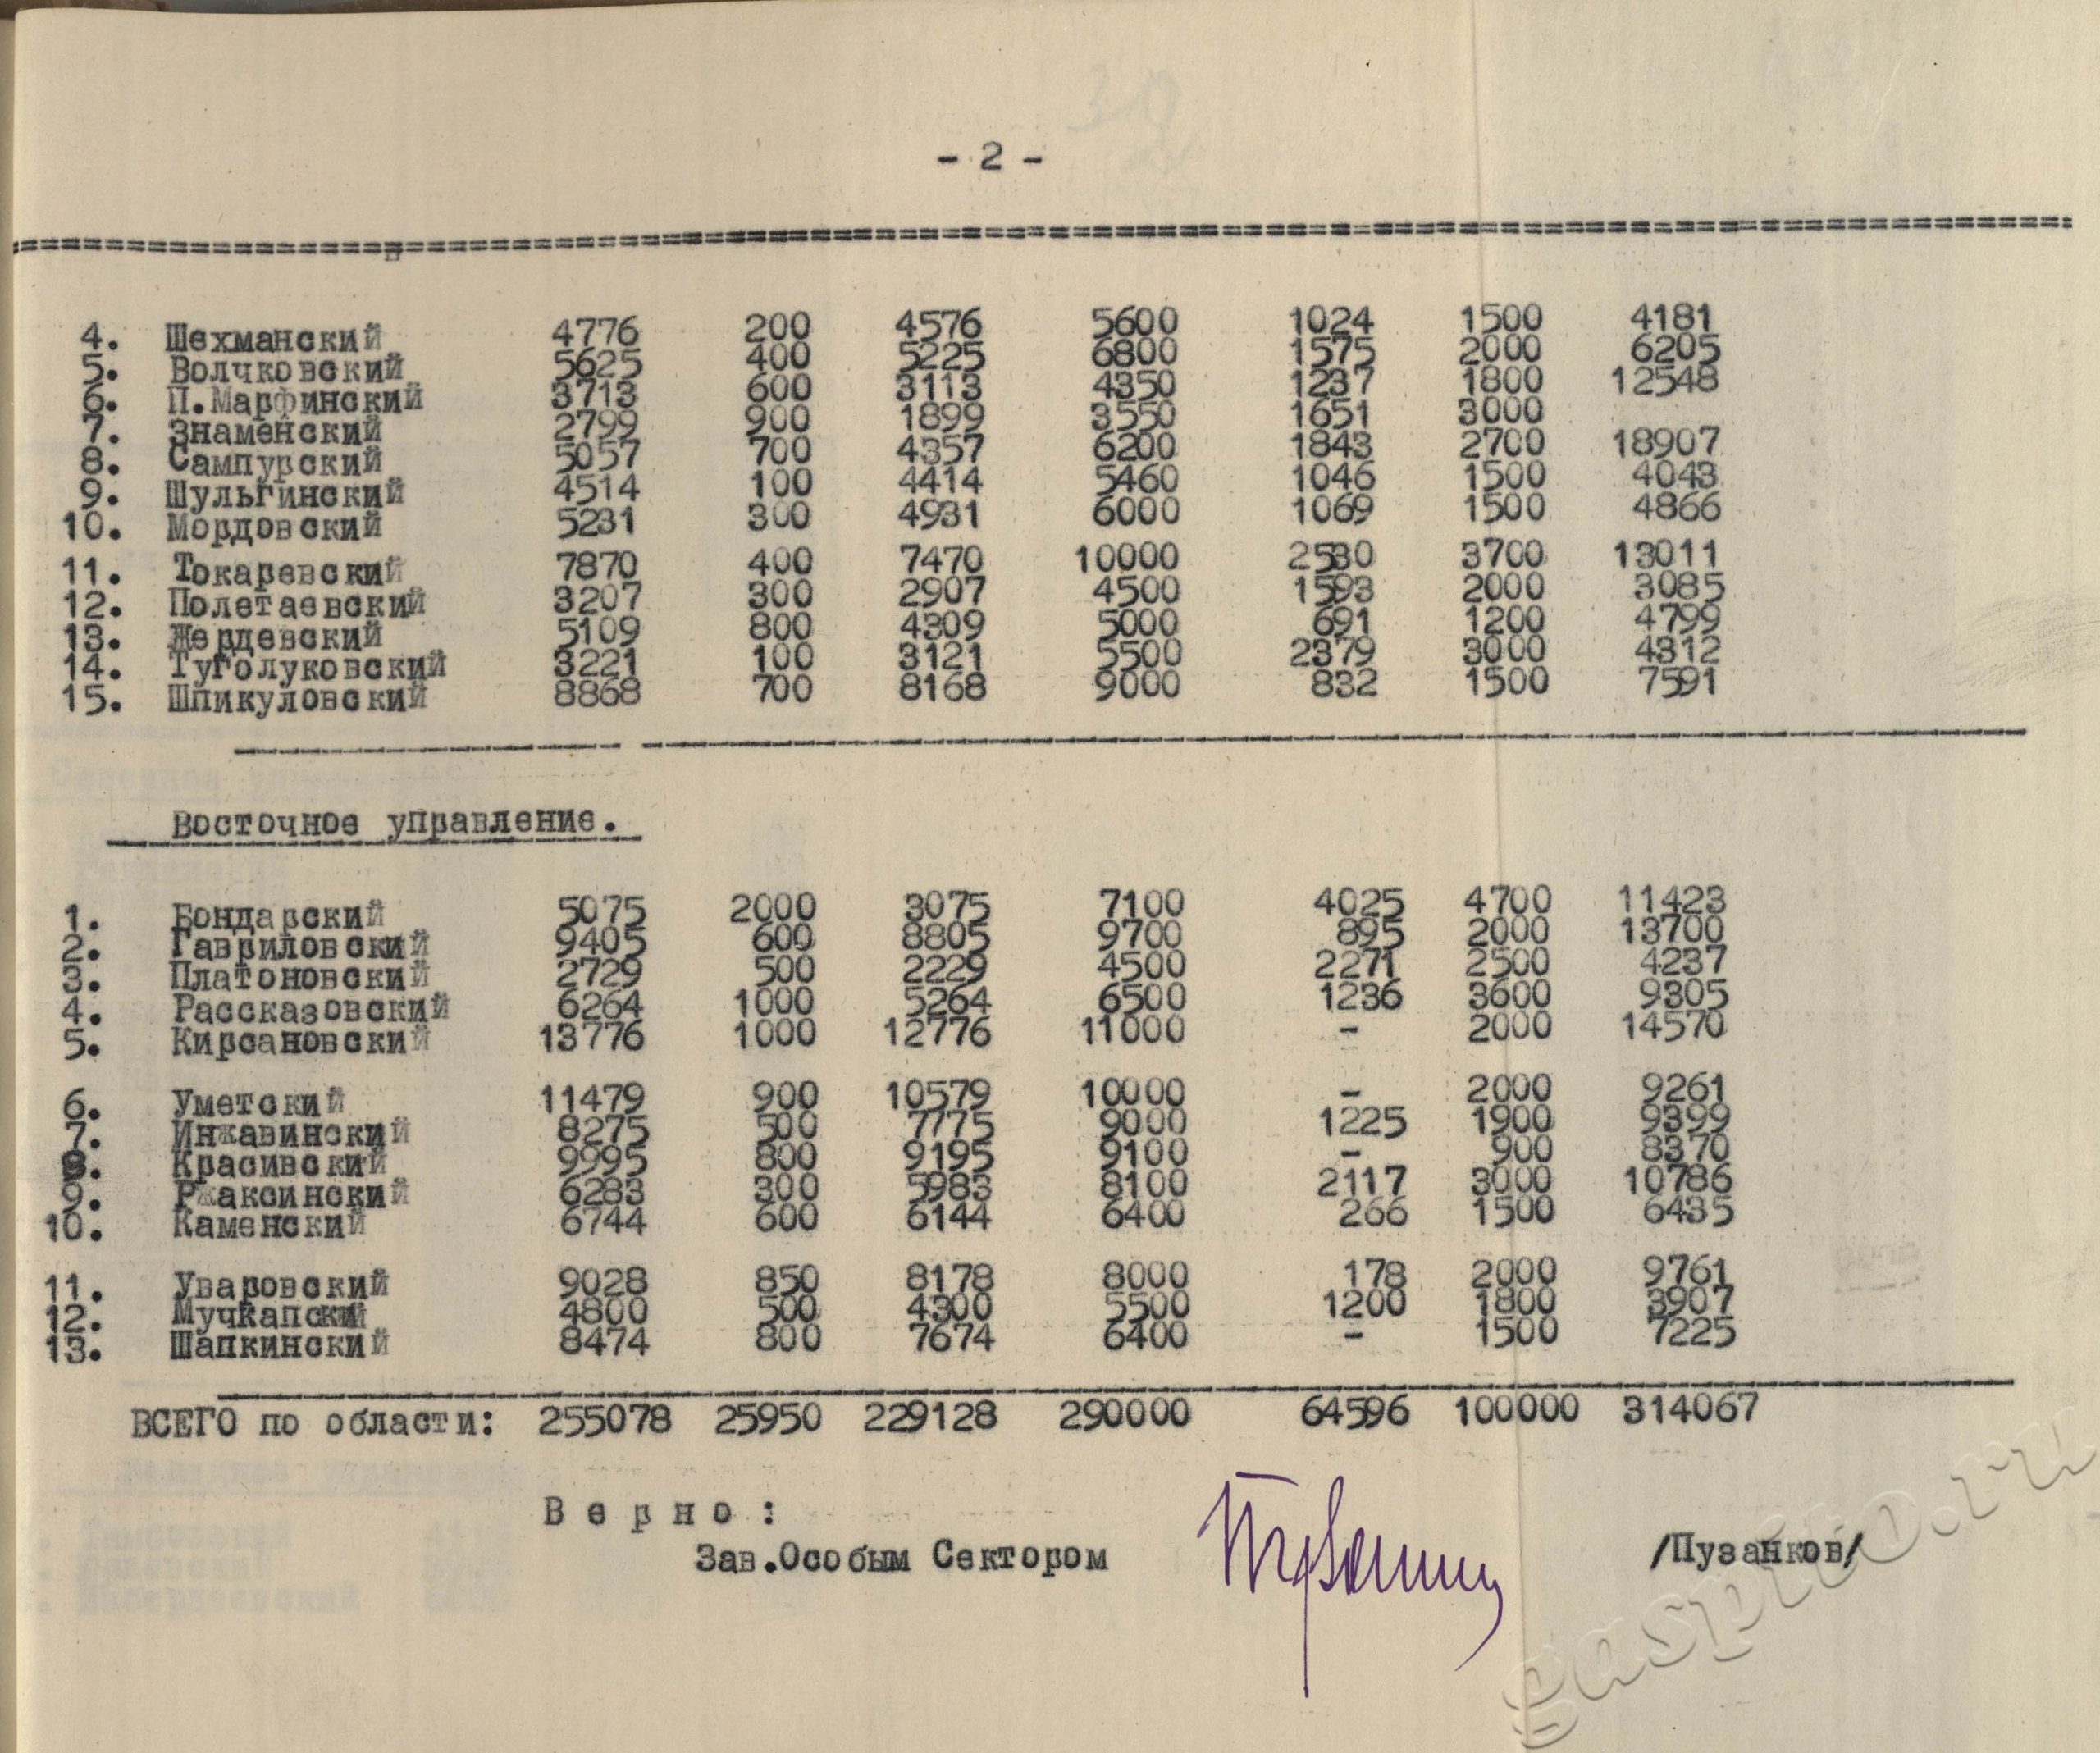 - 2 -
4. Шехманский 4776 200 4576 5600 1024 1500 4181
5. Волчковский 5625 400 5225 6800 1575 2000 6205
6. П.Марфинский 3713 600 3113 4350 1237 1800 12548
7. Знаменский 2799 900 1899 3550 1651 3000
8. Сампурский 5057 700 4357 6200 1843 2700 18907
9. Шульгинский 4514 100 4414 5460 1046 1500 4043
10. Мордовский 5231 300 4931 6000 1069 1500 4866
11. Токаревский 7870 400 7470 10000 2530 3700 13011
12. Полетаевский 3207 300 2907 4500 1593 2000 3085
13. Жердевский 5109 800 4309 5000 691 1200 4799
14. Туголуковский 3221 100 3121 5500 2379 3000 4312
15. Шпикуловский 8868 700 8168 9000 832 1500 7591
Восточное управление.
1. Бондарский 5075 2000 3075 7100 4025 4700 11423
2. Гавриловский 9405 600 8805 9700 895 2000 13700
3. Платоновский 2729 500 2229 4500 2271 2500 4237
4. Рассказовский 6264 1000 5264 6500 1236 3600 9305
5. Кирсановский 13776 1000 12776 11000 - 2000 14570
6. Уметский 11479 900 10579 10000 - 2000 9261
7. Инжавинский 8275 500 7775 9000 1225 1900 9399
8. Красивский 9995 800 9195 9100 - 900 8370
9. Ржаксинский 6283 300 5983 8100 2117 3000 10786
10. Каменский 6744 600 6144 6400 266 1500 6435
11. Уваровский 9028 850 8178 8000 178 2000 9761
12. Мучкапский 4800 500 4300 5500 1200 1800 3907
13. Шапкинский 8474 800 7674 6400 - 1500 7225
ВСЕГО по области: 255078 25950 229128 290000 64596 100000 314067
Верно:
Зав.Особым Сектором /Пузанков/
gaspito.ru